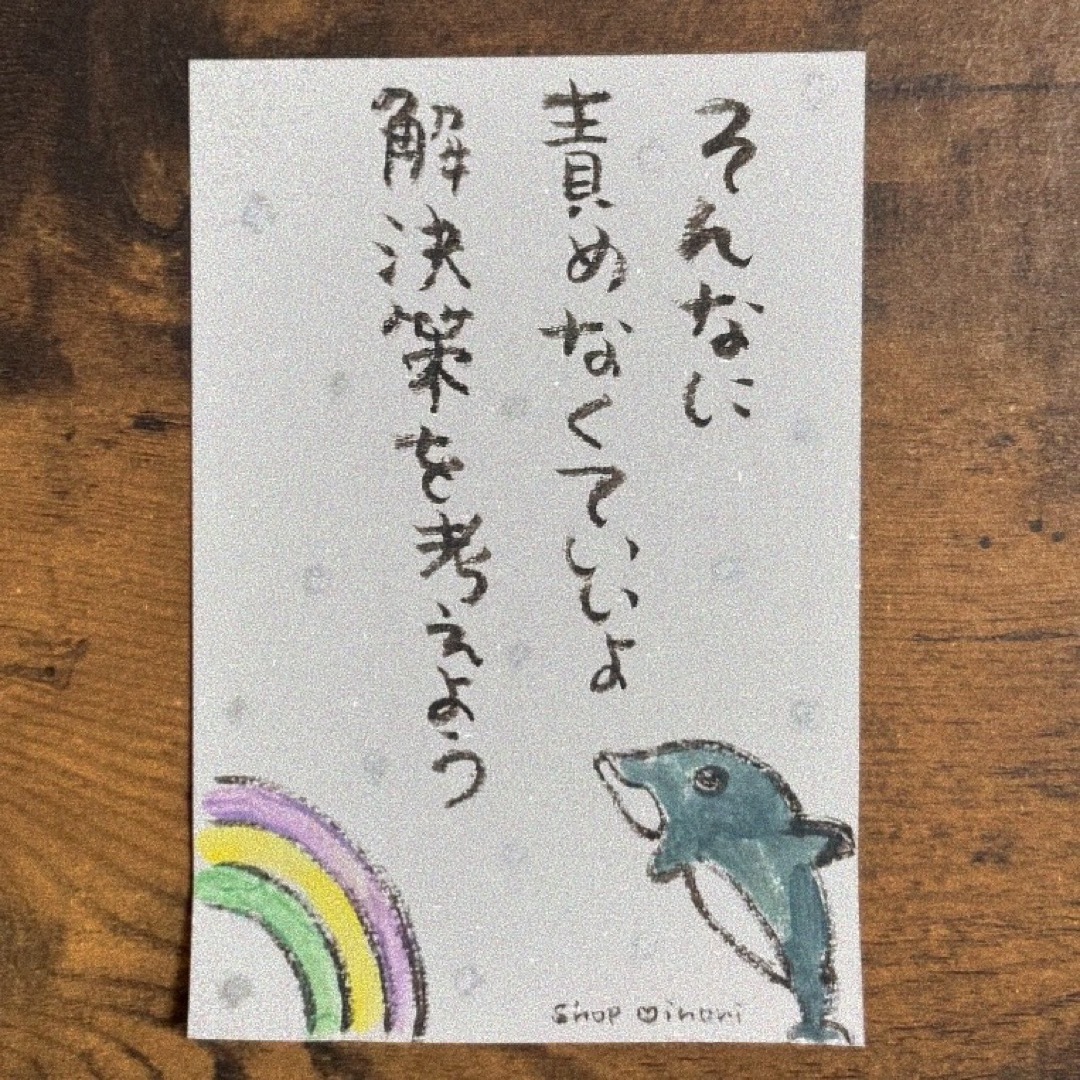 そんなに
責めなくていいよ
解決策を考えよう
shop ♡inori